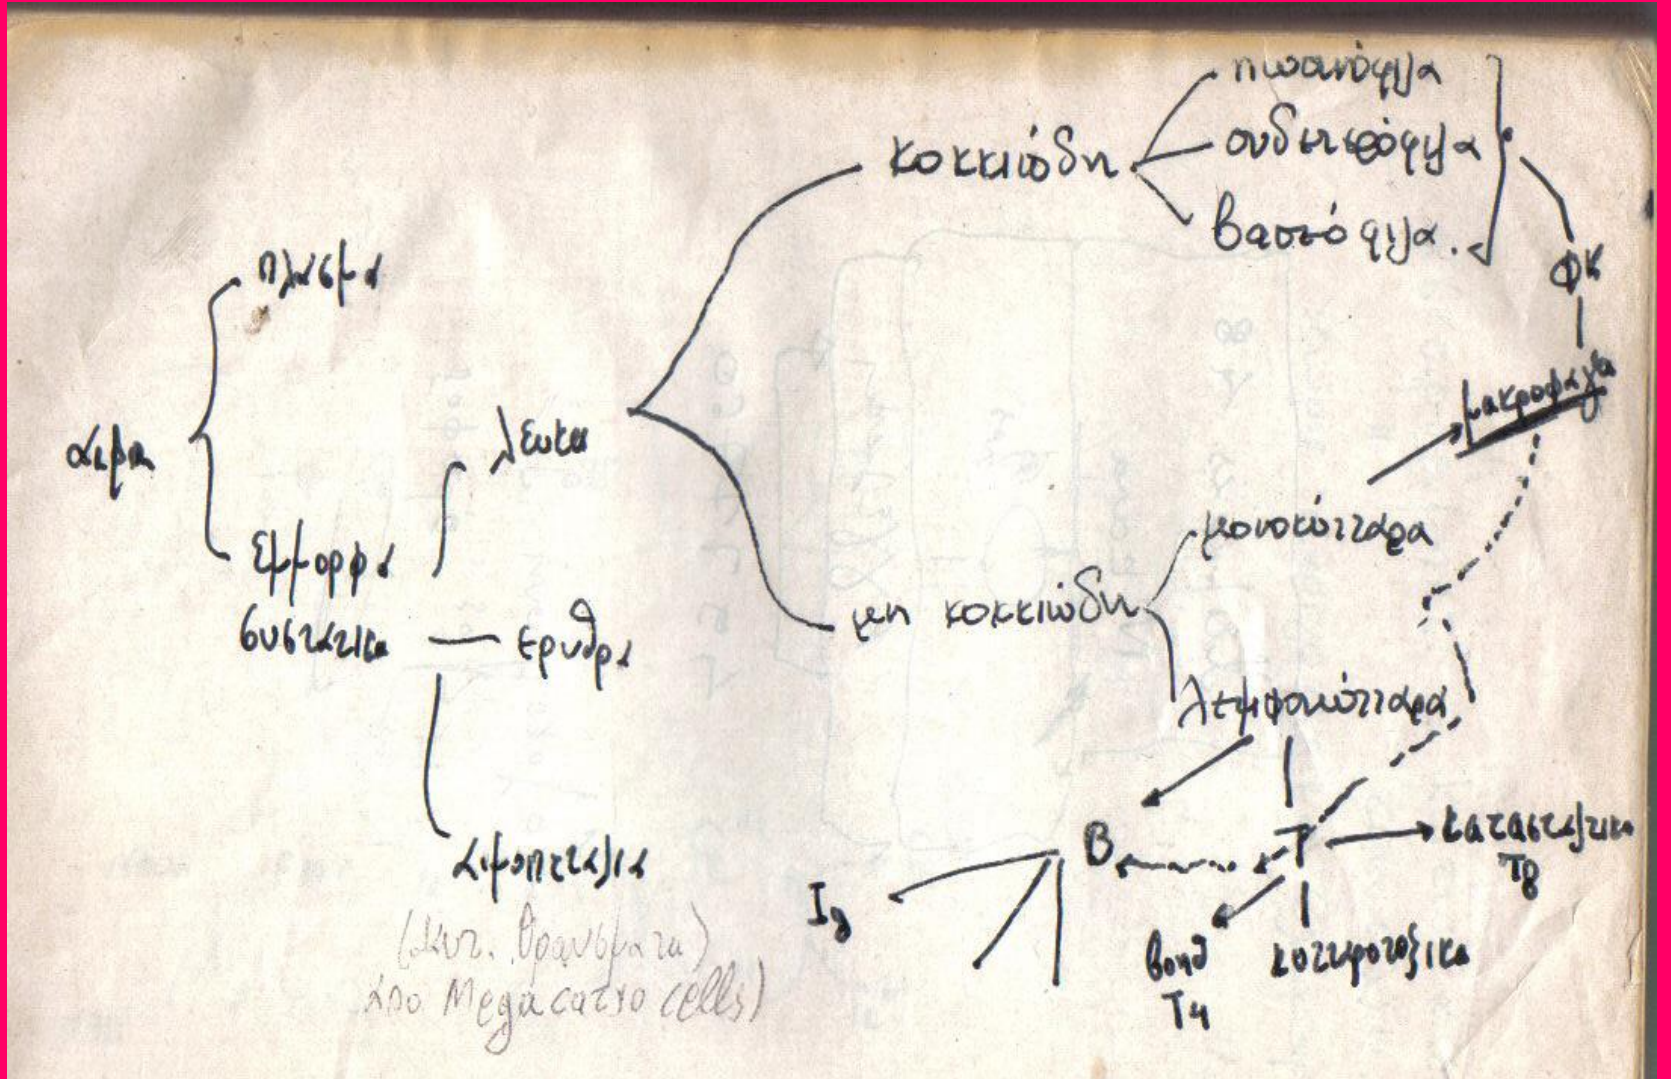 αιμα
πλασμα
εμμορφα
συστατικα
λευκα
ερυθρα
αιμοπεταλια
(κυτ. θραυσματα)
απο Megacaryo cells)
κοκκιώδη
ουδετερόφιλα
βασεόφιλα.
ΦΚ
μακροφαγα
μη κοκκιώδη
μονοκύτταρα
λεμφοκύτταρα
B
T
κατασταλτικα
T8
Ig
βοηθ
T4
κυτταροτοξικα